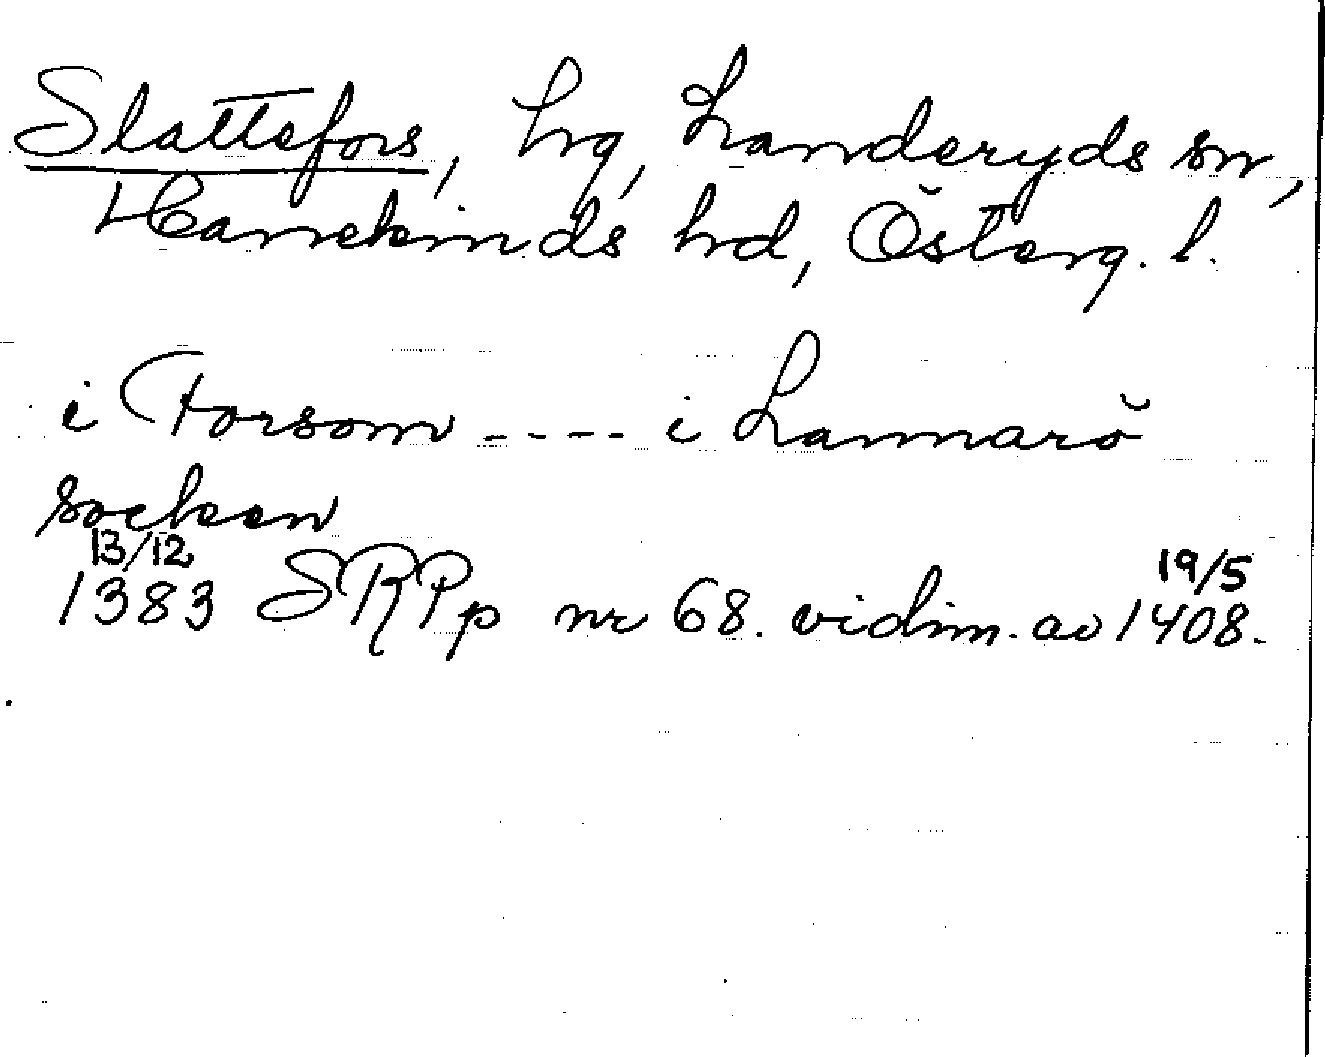 Slattefors, hg, Landeryds sn,
Hanekinds hd, Österg. l.
i Forsom ---- i Lannarö
socken
13/12 19/5
1383 SRPp nr 68. vidim. av 1408.